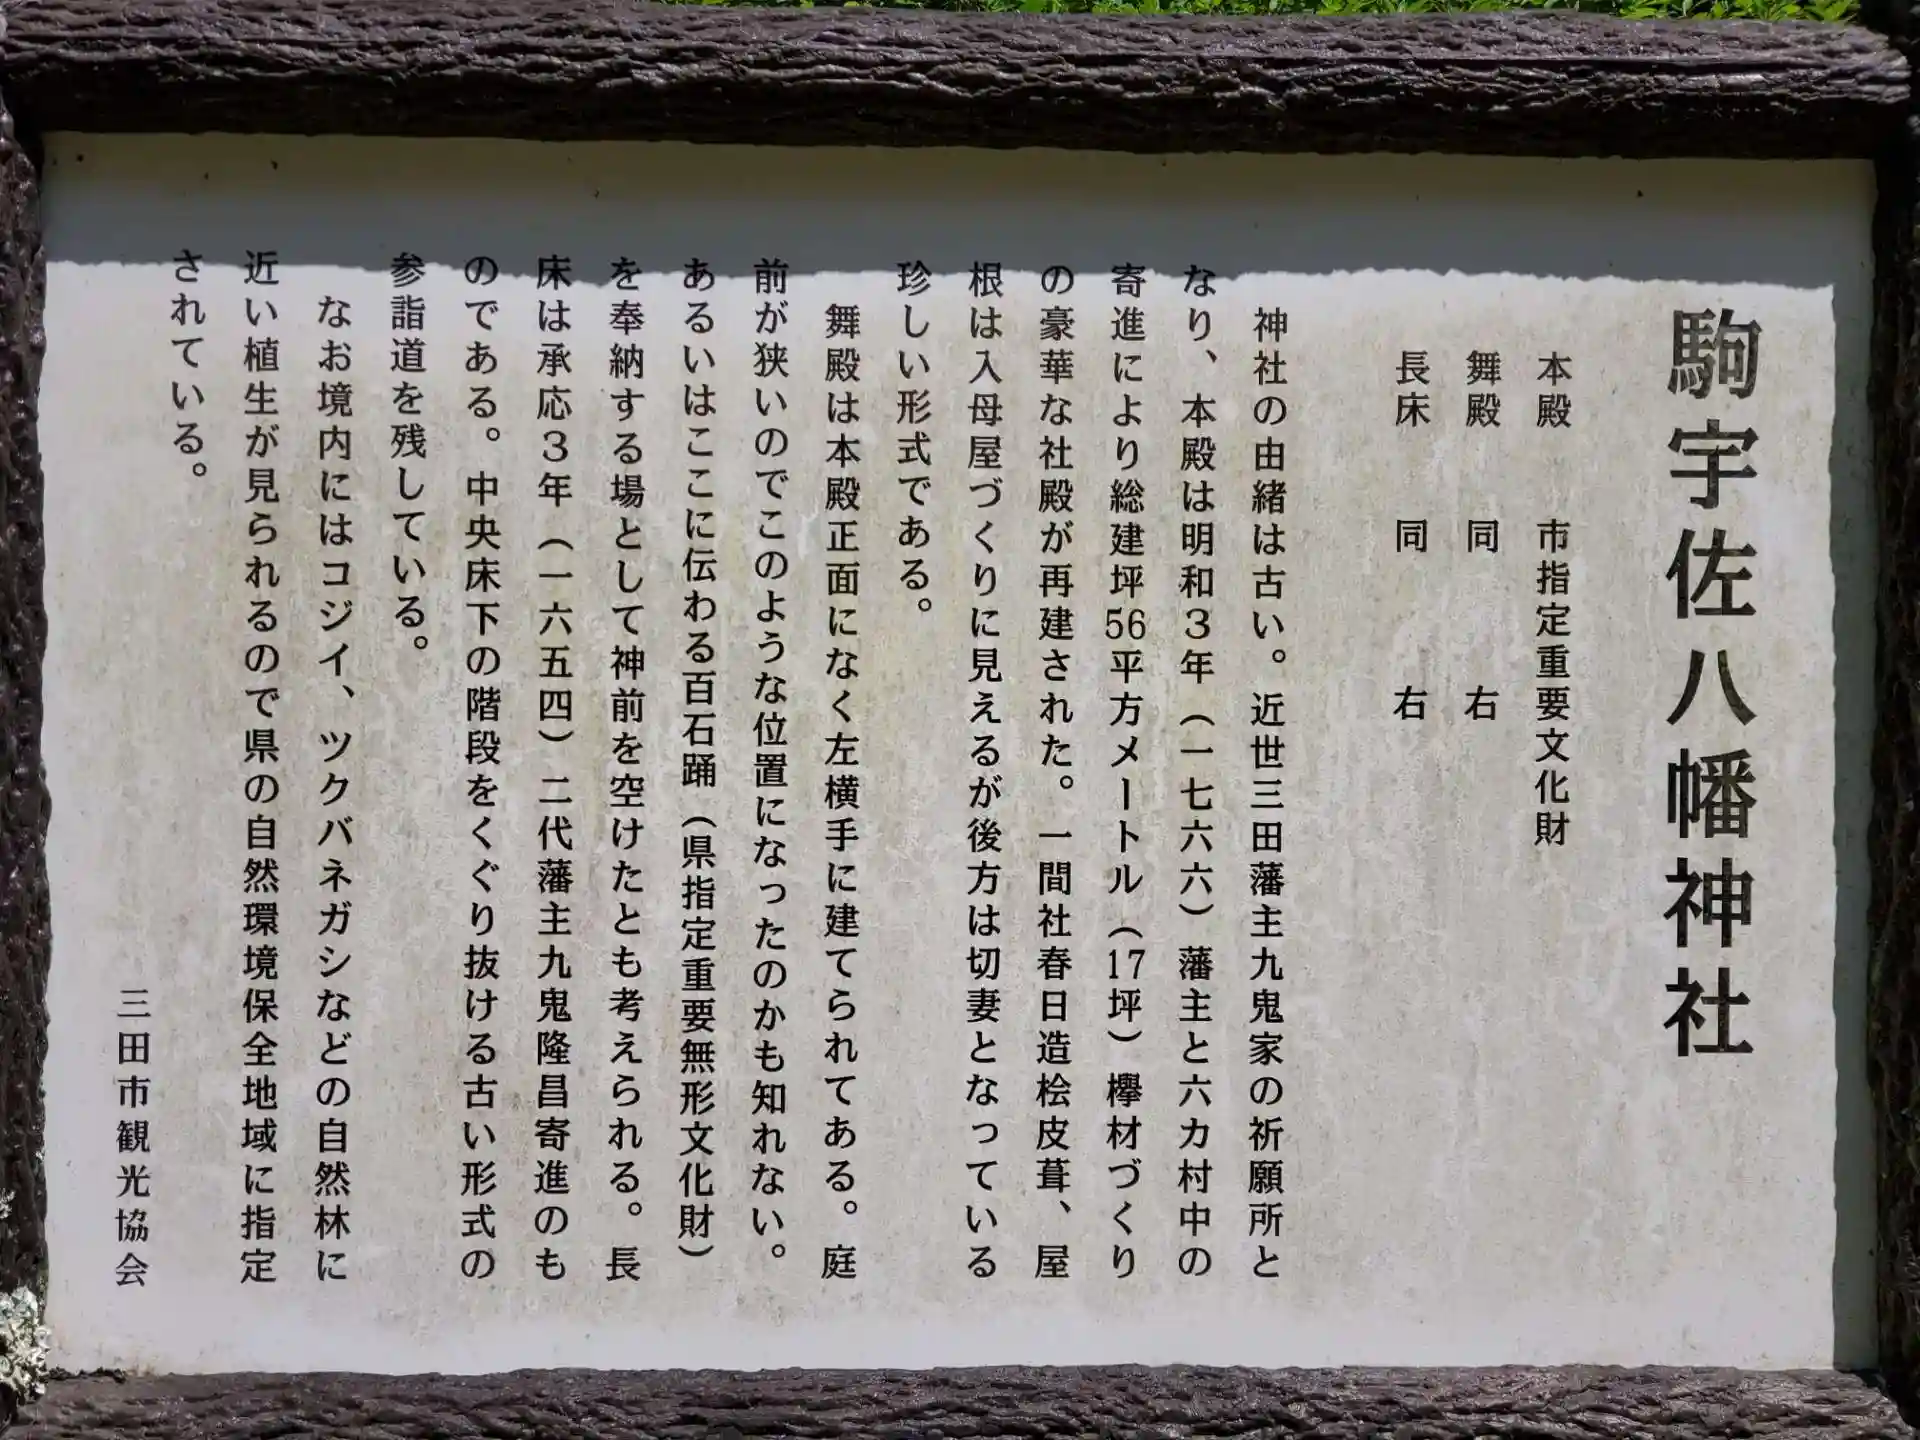 駒宇佐八幡神社
本殿　市指定重要文化財
舞殿　同　右
長床　同　右
神社の由緒は古い。近世三田藩主九鬼家の祈願所と
なり、本殿は明和３年（一七六六）藩主と六カ村中の
寄進により総建坪56平方メートル（17坪）欅材づくり
の豪華な社殿が再建された。一間社春日造桧皮葺、屋
根は入母屋づくりに見えるが後方は切妻となっている
珍しい形式である。
舞殿は本殿正面になく左横手に建てられてある。庭
前が狭いのでこのような位置になったのかも知れない。
あるいはここに伝わる百石踊（県指定重要無形文化財）
を奉納する場として神前を空けたとも考えられる。長
床は承応３年（一六五四）二代藩主九鬼隆昌寄進のも
のである。中央床下の階段をくぐり抜ける古い形式の
参詣道を残している。
なお境内にはコジイ、ツクバネガシなどの自然林に
近い植生が見られるので県の自然環境保全地域に指定
されている。
三田市観光協会